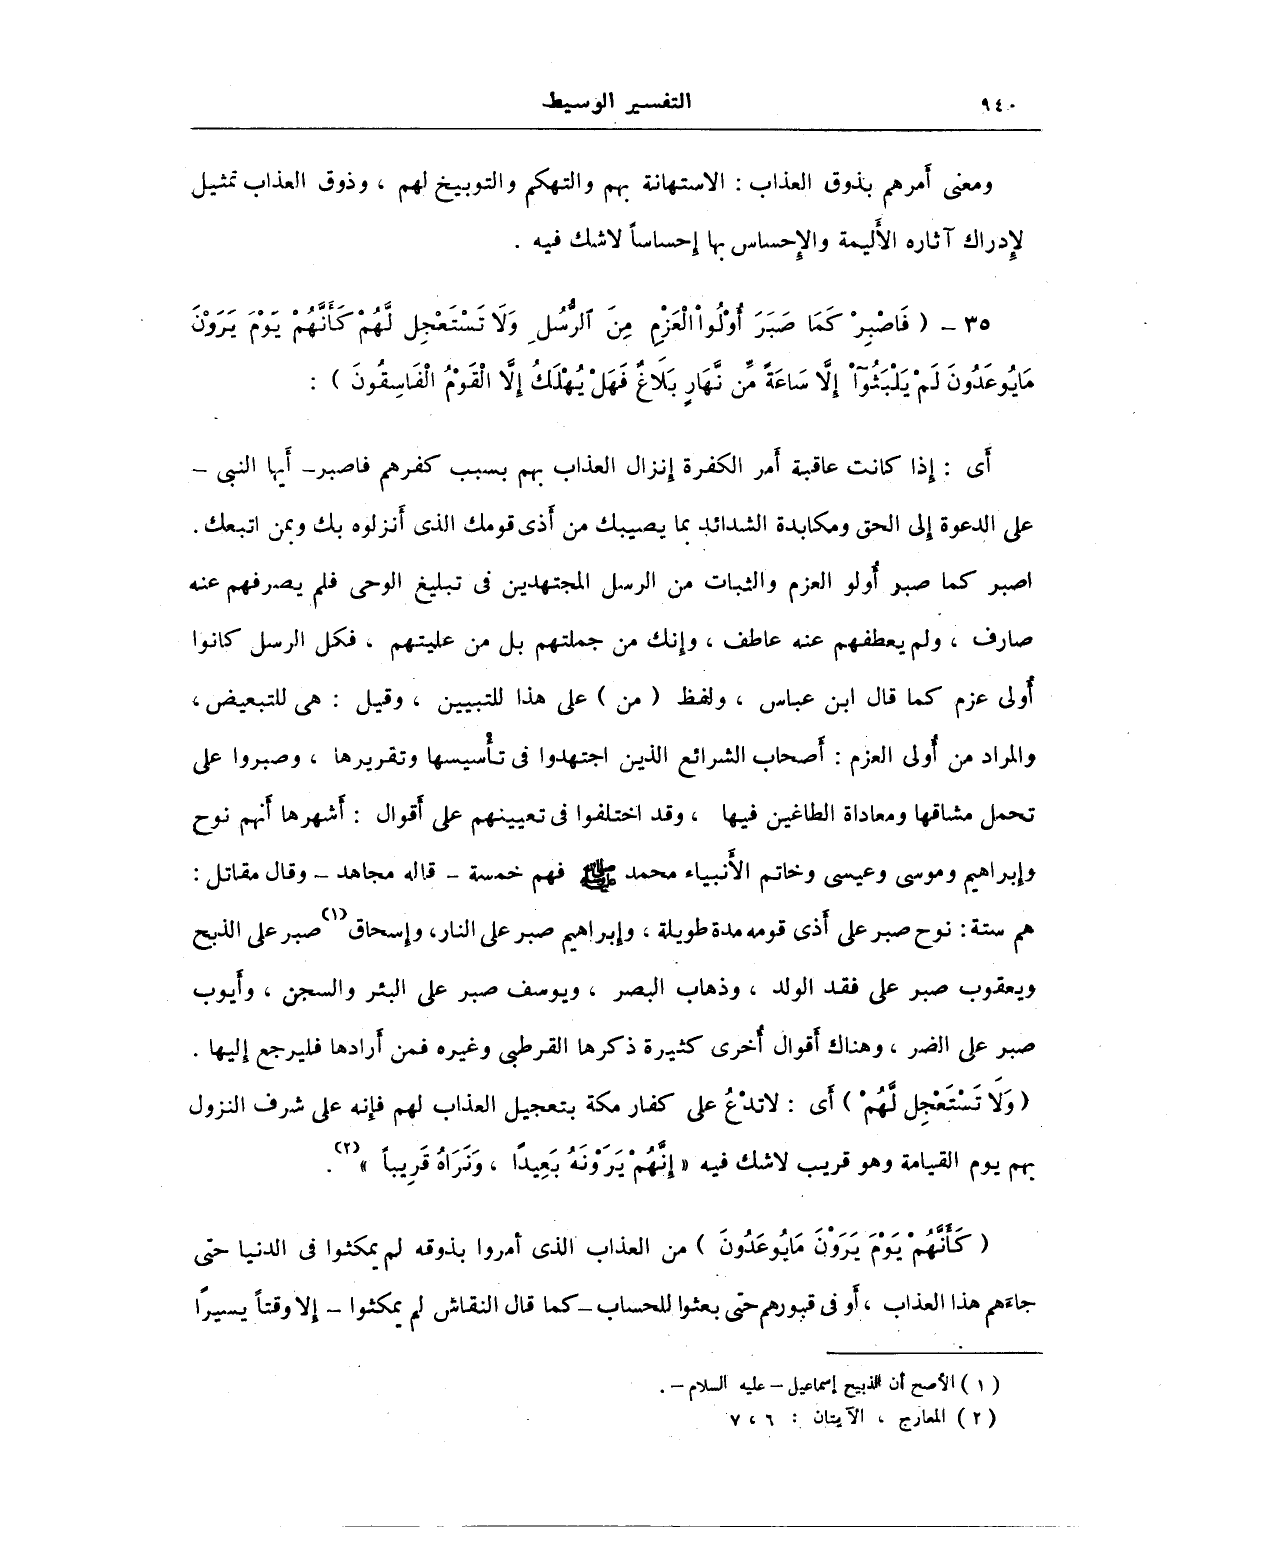 ٩٤٠
التفسير الوسيط
ومعنى أَمرهم بذوق العذاب : الاستهانة بهم والتهكم والتوبيخ لهم ، وذوق العذاب تمثيل
لإِدراك آثاره الأَليمة والإِحساس بها إحساساً لاشك فيه .
٣٥ – ( فَاصْبِرْ كَمَا صَبَرَ أُوْلُواْ الْعَزْمِ مِنَ ٱلرُّسُلِ وَلَا تَسْتَعْجِل لَّهُمْ كَأَنَّهُمْ يَوْمَ يَرَوْنَ
مَايُوعَدُونَ لَمْ يَلْبَثُوٓاْ إِلَّا سَاعَةً مِّن نَّهَارٍ بَلَاغٌ فَهَلْ يُهْلَكُ إِلَّا الْقَوْمُ الْفَاسِقُونَ ) :
أَى : إِذا كانت عاقبة أَمر الكفرة إِنزال العذاب بهم بسبب كفرهم فاصبر – أَيها النبى –
على الدعوة إِلى الحق ومكابدة الشدائد بما يصيبك من أَذى قومك الذى أَنزلوه بك وبمن اتبعك .
اصبر كما صبر أُولو العزم والثبات من الرسل المجتهدين فى تبليغ الوحى فلم يصرفهم عنه
صارف ، ولم يعطفهم عنه عاطف ، وإِنك من جملتهم بل من عليتهم ، فكل الرسل كانوا
أُولى عزم كما قال ابن عباس ، ولفظ ( من ) على هذا للتبيين ، وقيل : هى للتبعيض ،
والمراد من أُولى العزم : أَصحاب الشرائع الذين اجتهدوا فى تأْسيسها وتقريرها ، وصبروا على
تحمل مشاقها ومعاداة الطاغين فيها ، وقد اختلفوا فى تعيينهم على أَقوال : أَشهرها أَنهم نوح
وإِبراهيم وموسى وعيسى وخاتم الأَنبياء محمد ﷺ فهم خمسة – قاله مجاهد – وقال مقاتل :
هم ستة : نوح صبر على أَذى قومه مدة طويلة ، وإِبراهيم صبر على النار، وإِسحاق(١) صبر على الذبح
ويعقوب صبر على فقد الولد ، وذهاب البصر ، ويوسف صبر على البئر والسجن ، وأَيوب
صبر على الضر ، وهناك أَقوال أُخرى كثيرة ذكرها القرطبى وغيره فمن أَرادها فليرجع إِليها .
( وَلَا تَسْتَعْجِل لَّهُمْ ) أَى : لاتدْعُ على كفار مكة بتعجيل العذاب لهم فإِنه على شرف النزول
بهم يوم القيامة وهو قريب لاشك فيه « إِنَّهُمْ يَرَوْنَهُ بَعِيدًا ، وَنَرَاهُ قَرِيباً »(٢) .
( كَأَنَّهُمْ يَوْمَ يَرَوْنَ مَايُوعَدُونَ ) من العذاب الذى أمروا بذوقه لم يمكثوا فى الدنيا حتى
جاءهم هذا العذاب ، أَو فى قبورهم حتى بعثوا للحساب – كما قال النقاش لم يمكثوا – إِلا وقتاً يسيرًا
( ١ ) الأصح أن الذبيح إسماعيل – عليه السلام – .
( ٢ ) المعارج ، الآيتان : ٦ ، ٧